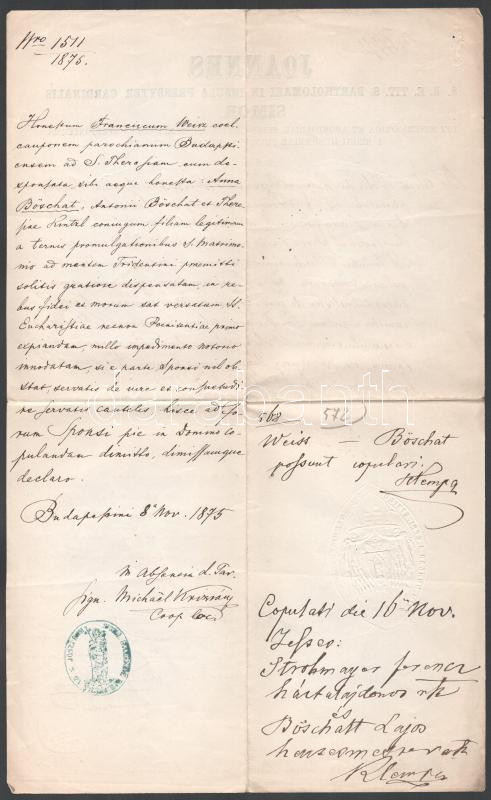 Nro 1511
1875.
JOANNES
S. R. E. TIT. S. BARTHOLOMAEI IN INSULA PRESBYTER CARDINALIS
SIMOR
Honestum Franciscum Weisz coel.
cauponem parochianum Budapesti
ensem ad S. Theresiam, cum de-
sponsata sibi aeque honesta: Anna
Böschat, Antonii Böschat et There
siae Hintal conjugum filiam legitimam
a ternis promulgationibus S. Matrimo-
nio ad mentem Tridentini praemitti
solitis gratiose dispensatam, in re-
bus fidei ac morum sat versatam, SS.
Eucharistiae necnon Poenitentiae primo
expiandam, nullo impedimento notorio
innodatam, si e parte Sponsi nil ob-
stat, servatis de iure et consvetudi
ne servatis cautelis, hisce ad fo-
rum Sponsi pie in Domino co-
pulandam dimitto, dimissamque
declaro.
Budapestini 8a Nov. 1875
in Absentia d. Par.
sign. Michaël
Coop loci
568 572
Weiss — Böschat
possunt copulari.
Klempa
Copulati die 16a Nov.
Testes:
Strohmayer Ferencz
háztulajdonos
és
Böschatt Lajos
Klempa
darabanth